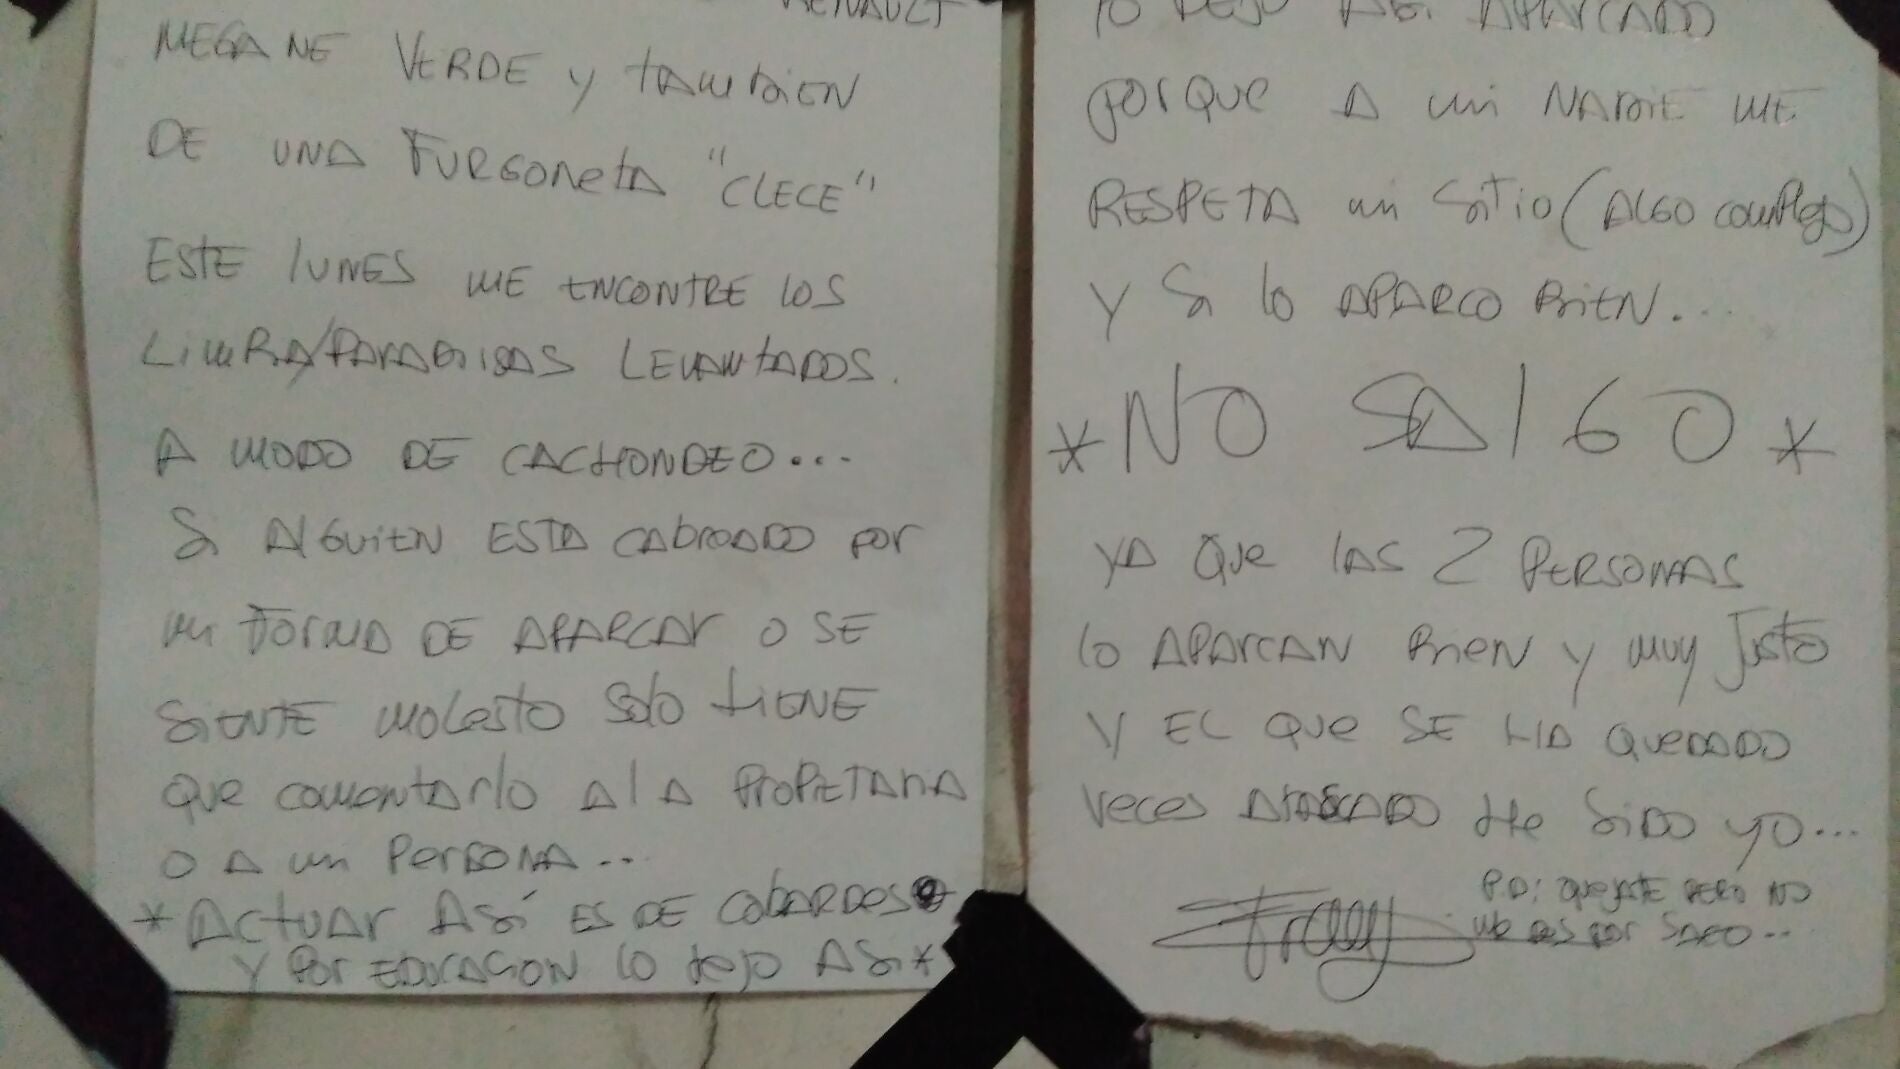 RENAULT
MEGANE VERDE y tambien
DE UNA FURGONETA "CLECE"
ESTE lUNES ME ENCONTRE LOS
LIMPIA/PARABRISAS LEVANTADOS.
A MODO DE CACHONDEO...
Si AlGUIEN ESTA CABREADO por
mi FORMA DE APARCAR O SE
SIENTE molesto solo tiENE
que comentarlo A lA PROPIETARIA
O A mi PERSONA..
* ACTUAR ASÍ ES DE COBARDES
Y POR EDUCACION lo dejo ASi *
lo DEJO ASi APARCADO
porque A mi NADIE ME
RESPETA mi Sitio (ALGO complejo)
Y Si lo APARCO BIEN...
* NO SAlGO *
YA QUE lAS 2 PERSONAS
lo APARCAN BIEN Y muy Justo
Y EL QUE SE HA QUEDADO
veces ATASCADO He SIDO yo...
P.D: QUEJATE PERO NO